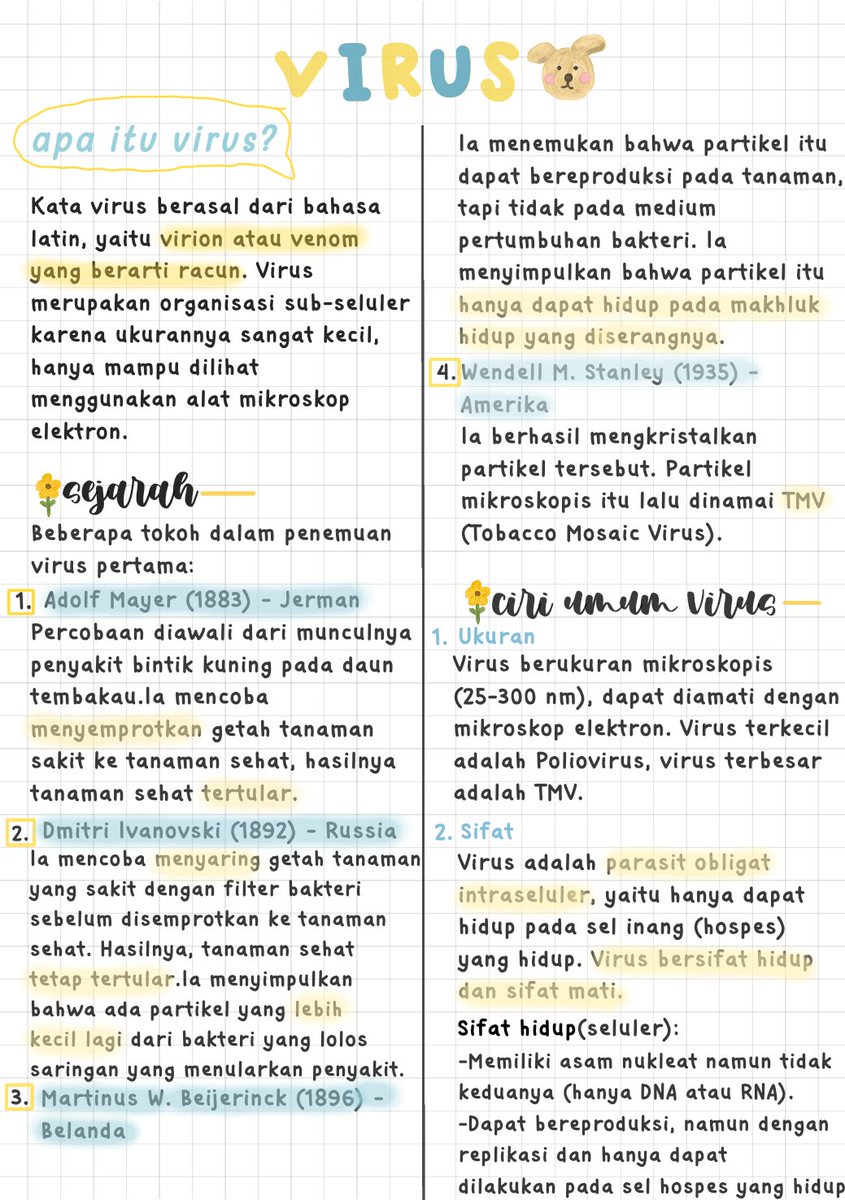 VIRUS
apa itu virus?
Kata virus berasal dari bahasa
latin, yaitu virion atau venom
yang berarti racun. Virus
merupakan organisasi sub-seluler
karena ukurannya sangat kecil,
hanya mampu dilihat
menggunakan alat mikroskop
elektron.
sejarah
Beberapa tokoh dalam penemuan
virus pertama:
1. Adolf Mayer (1883) - Jerman
Percobaan diawali dari munculnya
penyakit bintik kuning pada daun
tembakau.Ia mencoba
menyemprotkan getah tanaman
sakit ke tanaman sehat, hasilnya
tanaman sehat tertular.
2. Dmitri Ivanovski (1892) - Russia
Ia mencoba menyaring getah tanaman
yang sakit dengan filter bakteri
sebelum disemprotkan ke tanaman
sehat. Hasilnya, tanaman sehat
tetap tertular.Ia menyimpulkan
bahwa ada partikel yang lebih
kecil lagi dari bakteri yang lolos
saringan yang menularkan penyakit.
3. Martinus W. Beijerinck (1896) -
Belanda
Ia menemukan bahwa partikel itu
dapat bereproduksi pada tanaman,
tapi tidak pada medium
pertumbuhan bakteri. Ia
menyimpulkan bahwa partikel itu
hanya dapat hidup pada makhluk
hidup yang diserangnya.
4. Wendell M. Stanley (1935) -
Amerika
Ia berhasil mengkristalkan
partikel tersebut. Partikel
mikroskopis itu lalu dinamai TMV
(Tobacco Mosaic Virus).
ciri umum virus
1. Ukuran
Virus berukuran mikroskopis
(25-300 nm), dapat diamati dengan
mikroskop elektron. Virus terkecil
adalah Poliovirus, virus terbesar
adalah TMV.
2. Sifat
Virus adalah parasit obligat
intraseluler, yaitu hanya dapat
hidup pada sel inang (hospes)
yang hidup. Virus bersifat hidup
dan sifat mati.
Sifat hidup(seluler):
-Memiliki asam nukleat namun tidak
keduanya (hanya DNA atau RNA).
-Dapat bereproduksi, namun dengan
replikasi dan hanya dapat
dilakukan pada sel hospes yang hidup